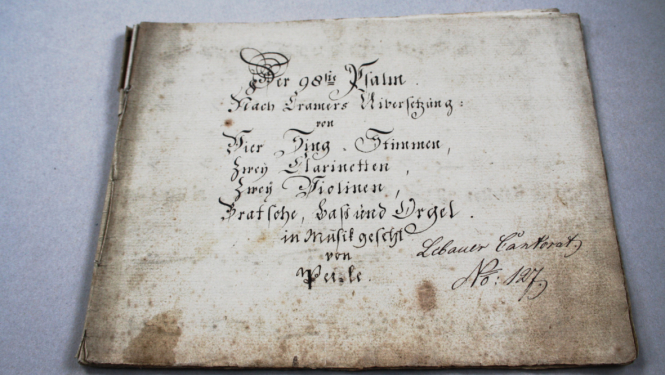 Der 98ste Psalm.
Nach Cramers Uibersetzung:
von
Vier Sing-Stimmen,
Zwey Clarinetten,
Zwey Violinen,
Bratsche, Bass und Orgel.
in Musik gesetzt
von
Lebauer Cantorat,
No: 127,